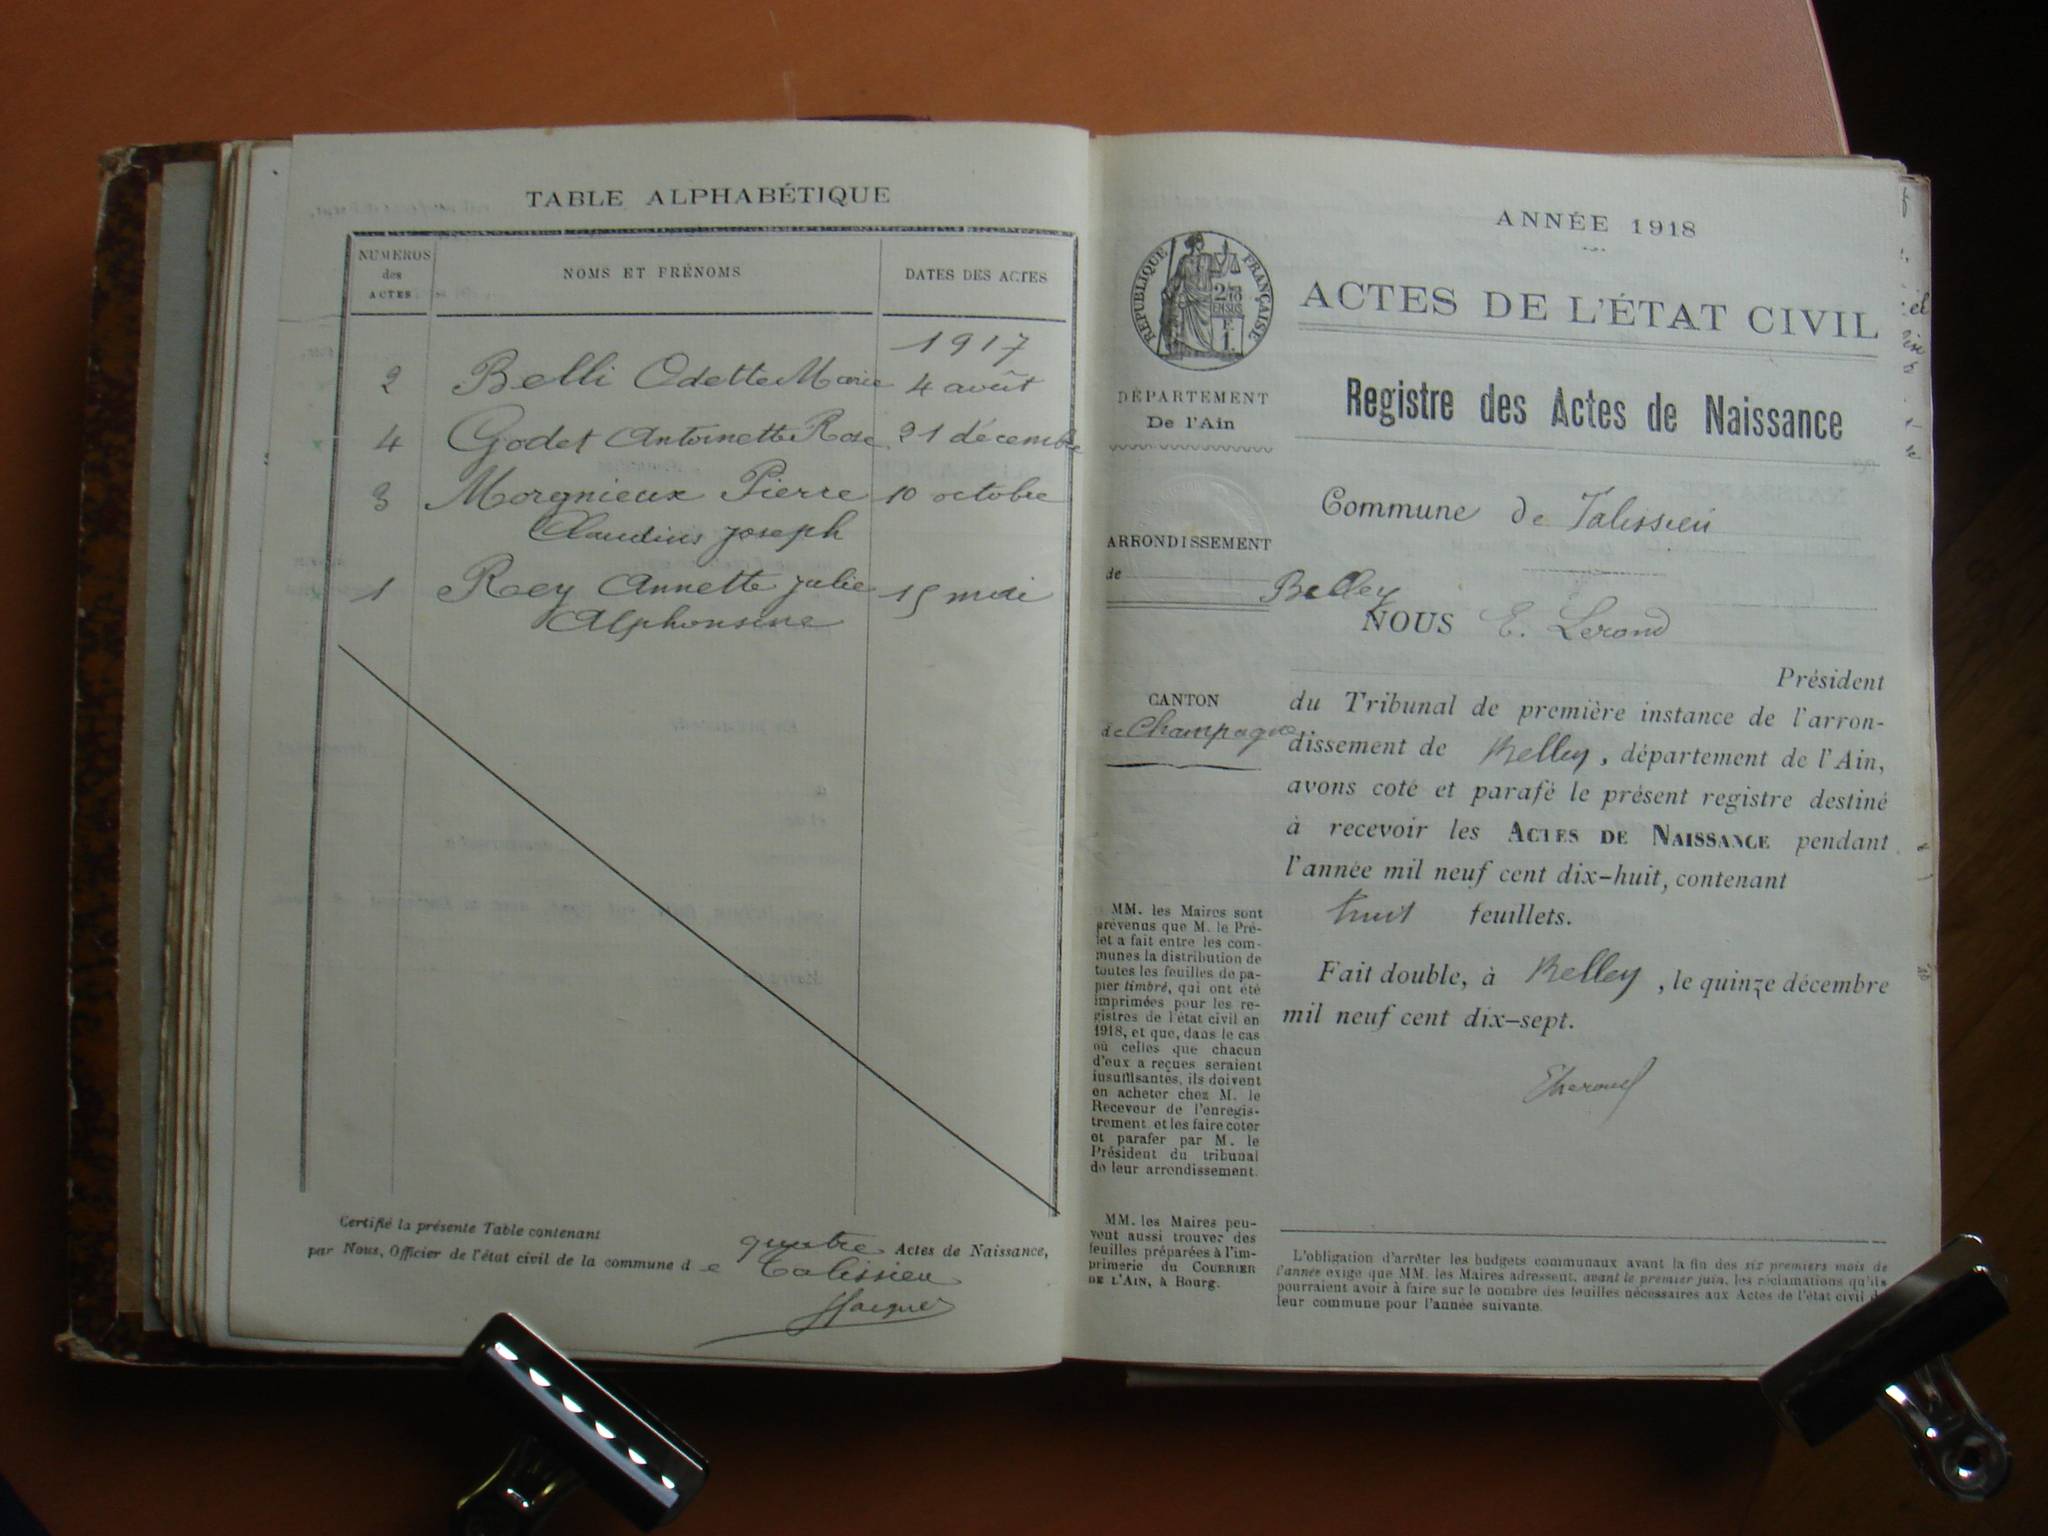 TABLE ALPHABÉTIQUE
NUMÉROS
des
ACTES
NOMS ET PRÉNOMS
DATES DES ACTES
1917
2 Belli Odette Marie 4 août
4 Godet Antoinette Rose 21 décembre
3 Morgnieux Pierre 10 octobre
Claudius Joseph
1 Rey Annette Julie 15 mai
Alphonsine
Certifié la présente Table contenant quatre Actes de Naissance,
par Nous, Officier de l'état civil de la commune de Talissieu
ANNÉE 1918
RÉPUBLIQUE FRANÇAISE
2/10
EN SUS
F
1.
ACTES DE L'ÉTAT CIVIL
DÉPARTEMENT
De l'Ain
Registre des Actes de Naissance
Commune de Talissieu
ARRONDISSEMENT
de Belley
NOUS E.
CANTON
de Champagne
Président
du Tribunal de première instance de l'arron-
dissement de Belley, département de l'Ain,
avons coté et parafé le présent registre destiné
à recevoir les ACTES DE NAISSANCE pendant
l'année mil neuf cent dix-huit, contenant
huit feuillets.
Fait double, à Belley, le quinze décembre
mil neuf cent dix-sept.
MM. les Maires sont
prévenus que M. le Pré-
fet a fait entre les com-
munes la distribution de
toutes les feuilles de pa-
pier timbré, qui ont été
imprimées pour les re-
gistres de l'état civil en
1918, et que, dans le cas
où celles que chacun
d'eux a reçues seraient
insuffisantes, ils doivent
en acheter chez M. le
Receveur de l'enregis-
trement et les faire coter
et parafer par M. le
Président du tribunal
de leur arrondissement.
MM. les Maires peu-
vent aussi trouver des
feuilles préparées à l'im-
primerie du COURRIER
DE L'AIN, à Bourg.
L'obligation d'arrêter les budgets communaux avant la fin des six premiers mois de
l'année exige que MM. les Maires adressent, avant le premier juin, les réclamations qu'ils
pourraient avoir à faire sur le nombre des feuilles nécessaires aux Actes de l'état civil de
leur commune pour l'année suivante.